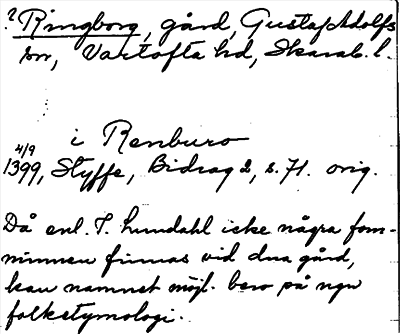 ? Ringborg, gård, Gustaf Adolfs
sn, Vartofta hd, Skarab. l.
i Renburo
4/9
1399, Styffe, Bidrag 2, s. 71. orig.
Då enl. T. Lundahl icke några forn-
minnen finnas vid dna gård,
kan namnet möjl. bero på ngn
folketymologi.